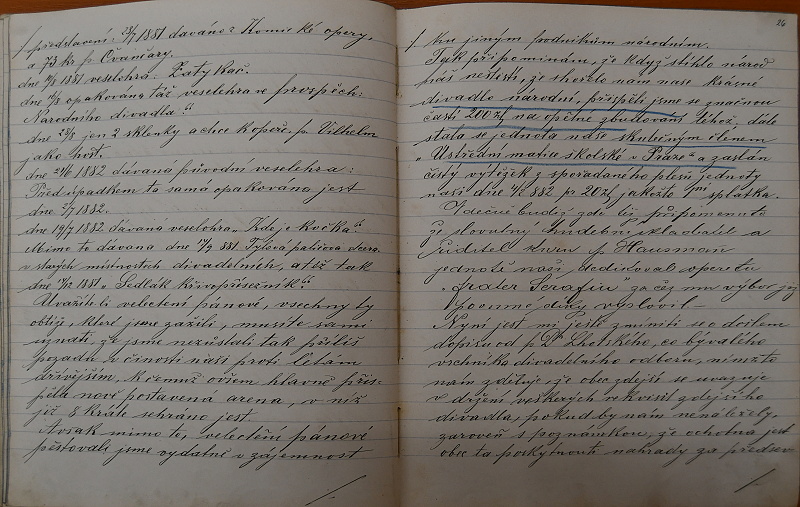 představení: 3/7 1881 dáváno: Komické opery,
a 73 kr p. Čvančary.
dne 7/8 1881 veselohra: Zatykač.
dne opakována táž veselohra ve prospěch:
Národního divadla."
dne 28/8 jen 2 sklenky a chce Kopeč. p. Vilhelm
jako host.
dne 24/6 1882 dávaná původní veselohra:
Před úpadkem ta samá opakována jest
dne 2/7 1882.
dne 19/7 1882 dávaná veselohra „Kde je kočka?"
Mimo to dávana dne 17/4 881. Tylova paličova dcera
v starých místnostech divadelních, a též tak
dne 1881 „Sedlák křivopřísežník"
Uvážíte-li velectění pánové, všechny ty
obtíže, které jsme zažili, musíte sami
uznati, že jsme nezůstali tak příliš
pozadu v činosti naši proti létám
dřívějším, k čemuž ovšem hlavně přis-
pěla nově postavená arena, v níž
již 8 kráte sehráno jest.
Avšak mimo to, velectění pánové
pěstovali jsme vydatně v zájemnost
26
ku jiným podnikům národním.
Tak připomínám, že když stihlo národ
náš neštěstí, že shořelo nám naše krásné
divadlo národní, přispěli jsme se značnou
částí 200 zl na opětné zbudování téhož, dále
stala se jednota naše skutečným členem
„Ústřední matice školské v Praze" a zaslán
čistý výtěžek z spořádaného plesu jednoty
naší dne 882 p. 20 zl jakožto 1ní splátka.
Vděčně budiž zde též připomenuto
že slovutný hudební skladatel a
ředitel kůru p. Hausman
jednotě naší dedicíroval operetu
„Frater Serafin" za čež mu výbor jej
povinné díky vyslovil. –
Nyní jest mi ještě zmíniti se o došlém
dopisu od p. Dr Lhotského, co bývalého
vrchníka divadelního odboru, nímžto
nám zděluje, že obec zdejší se uvazuje
v držení veškerých rekvisit zdejšího
divadla, pokud by nám nenáležely,
zároveň s poznámkou, že ochotna jest
obec ta poskytnouti nahrady za předsev-